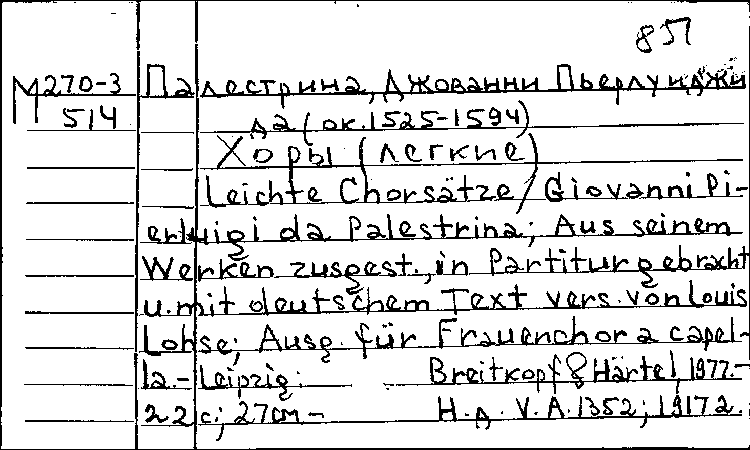 857
М270-3 Палестрина, Джованни Пьерлуиджи
514 да (ок. 1525-1594)
Хоры (легкие)
Leichte Chorsätze / Giovanni Pi-
erluigi da Palestrina; Aus seinem
Werken zusgest., in Partitur gebracht
u. mit deutschem Text vers. von Louis
Lohse; Ausg. für Frauenchor a capel-
la. - Leipzig: Breitkopf & Härtel, 1977. -
22 с.; 27 см - Н. д. V. A. 1352; 19172.